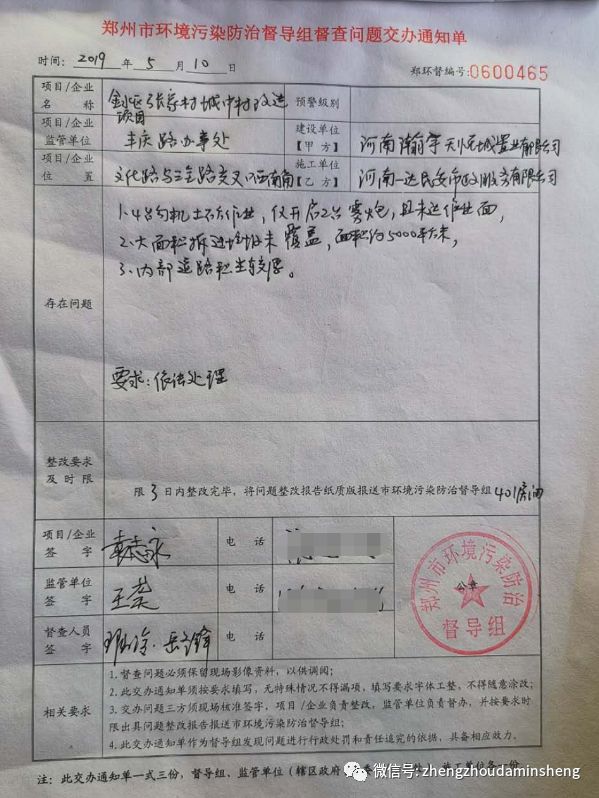 郑州市环境污染防治督导组督查问题交办通知单
时间: 2019 年 5 月 10 日
郑环督编号:0600465
项目/企业名称 金水区张家村城中村改造项目 预警级别
项目/企业监管单位 丰庆路办事处 建设单位【甲方】 河南瀚宇天悦城置业有限公司
项目/企业位置 文化路与三全路交叉口西南角 施工单位【乙方】 河南一达民安市政服务有限公司
存在问题
1.4台勾机土石方作业,仅开启2台雾炮,且未达作业面,
2.大面积拆迁垃圾未覆盖,面积约5000平方米,
3.内部道路积尘较厚。
要求:依法处理
整改要求及时限
限 3 日内整改完毕,将问题整改报告纸质版报送市环境污染防治督导组 401房间
项目/企业签字 电话
监管单位签字 电话
督查人员签字 电话
郑州市环境污染防治
督导组
公章
相关要求
1.督查问题必须保留现场影像资料,以供调阅;
2.此交办通知单须按要求填写,无特殊情况不得漏项,填写要求字体工整,不得随意涂改;
3.交办问题三方须现场核准签字,项目/企业负责整改,监管单位负责督办,并按要求时
限出具问题整改报告报送市环境污染防治督导组;
4.此交办通知单作为督导组发现问题进行行政处罚和责任追究的依据,具备相应效力。
注:此交办通知单一式三份,督导组、监管单位(辖区政府
微信号: zhengzhoudaminsheng